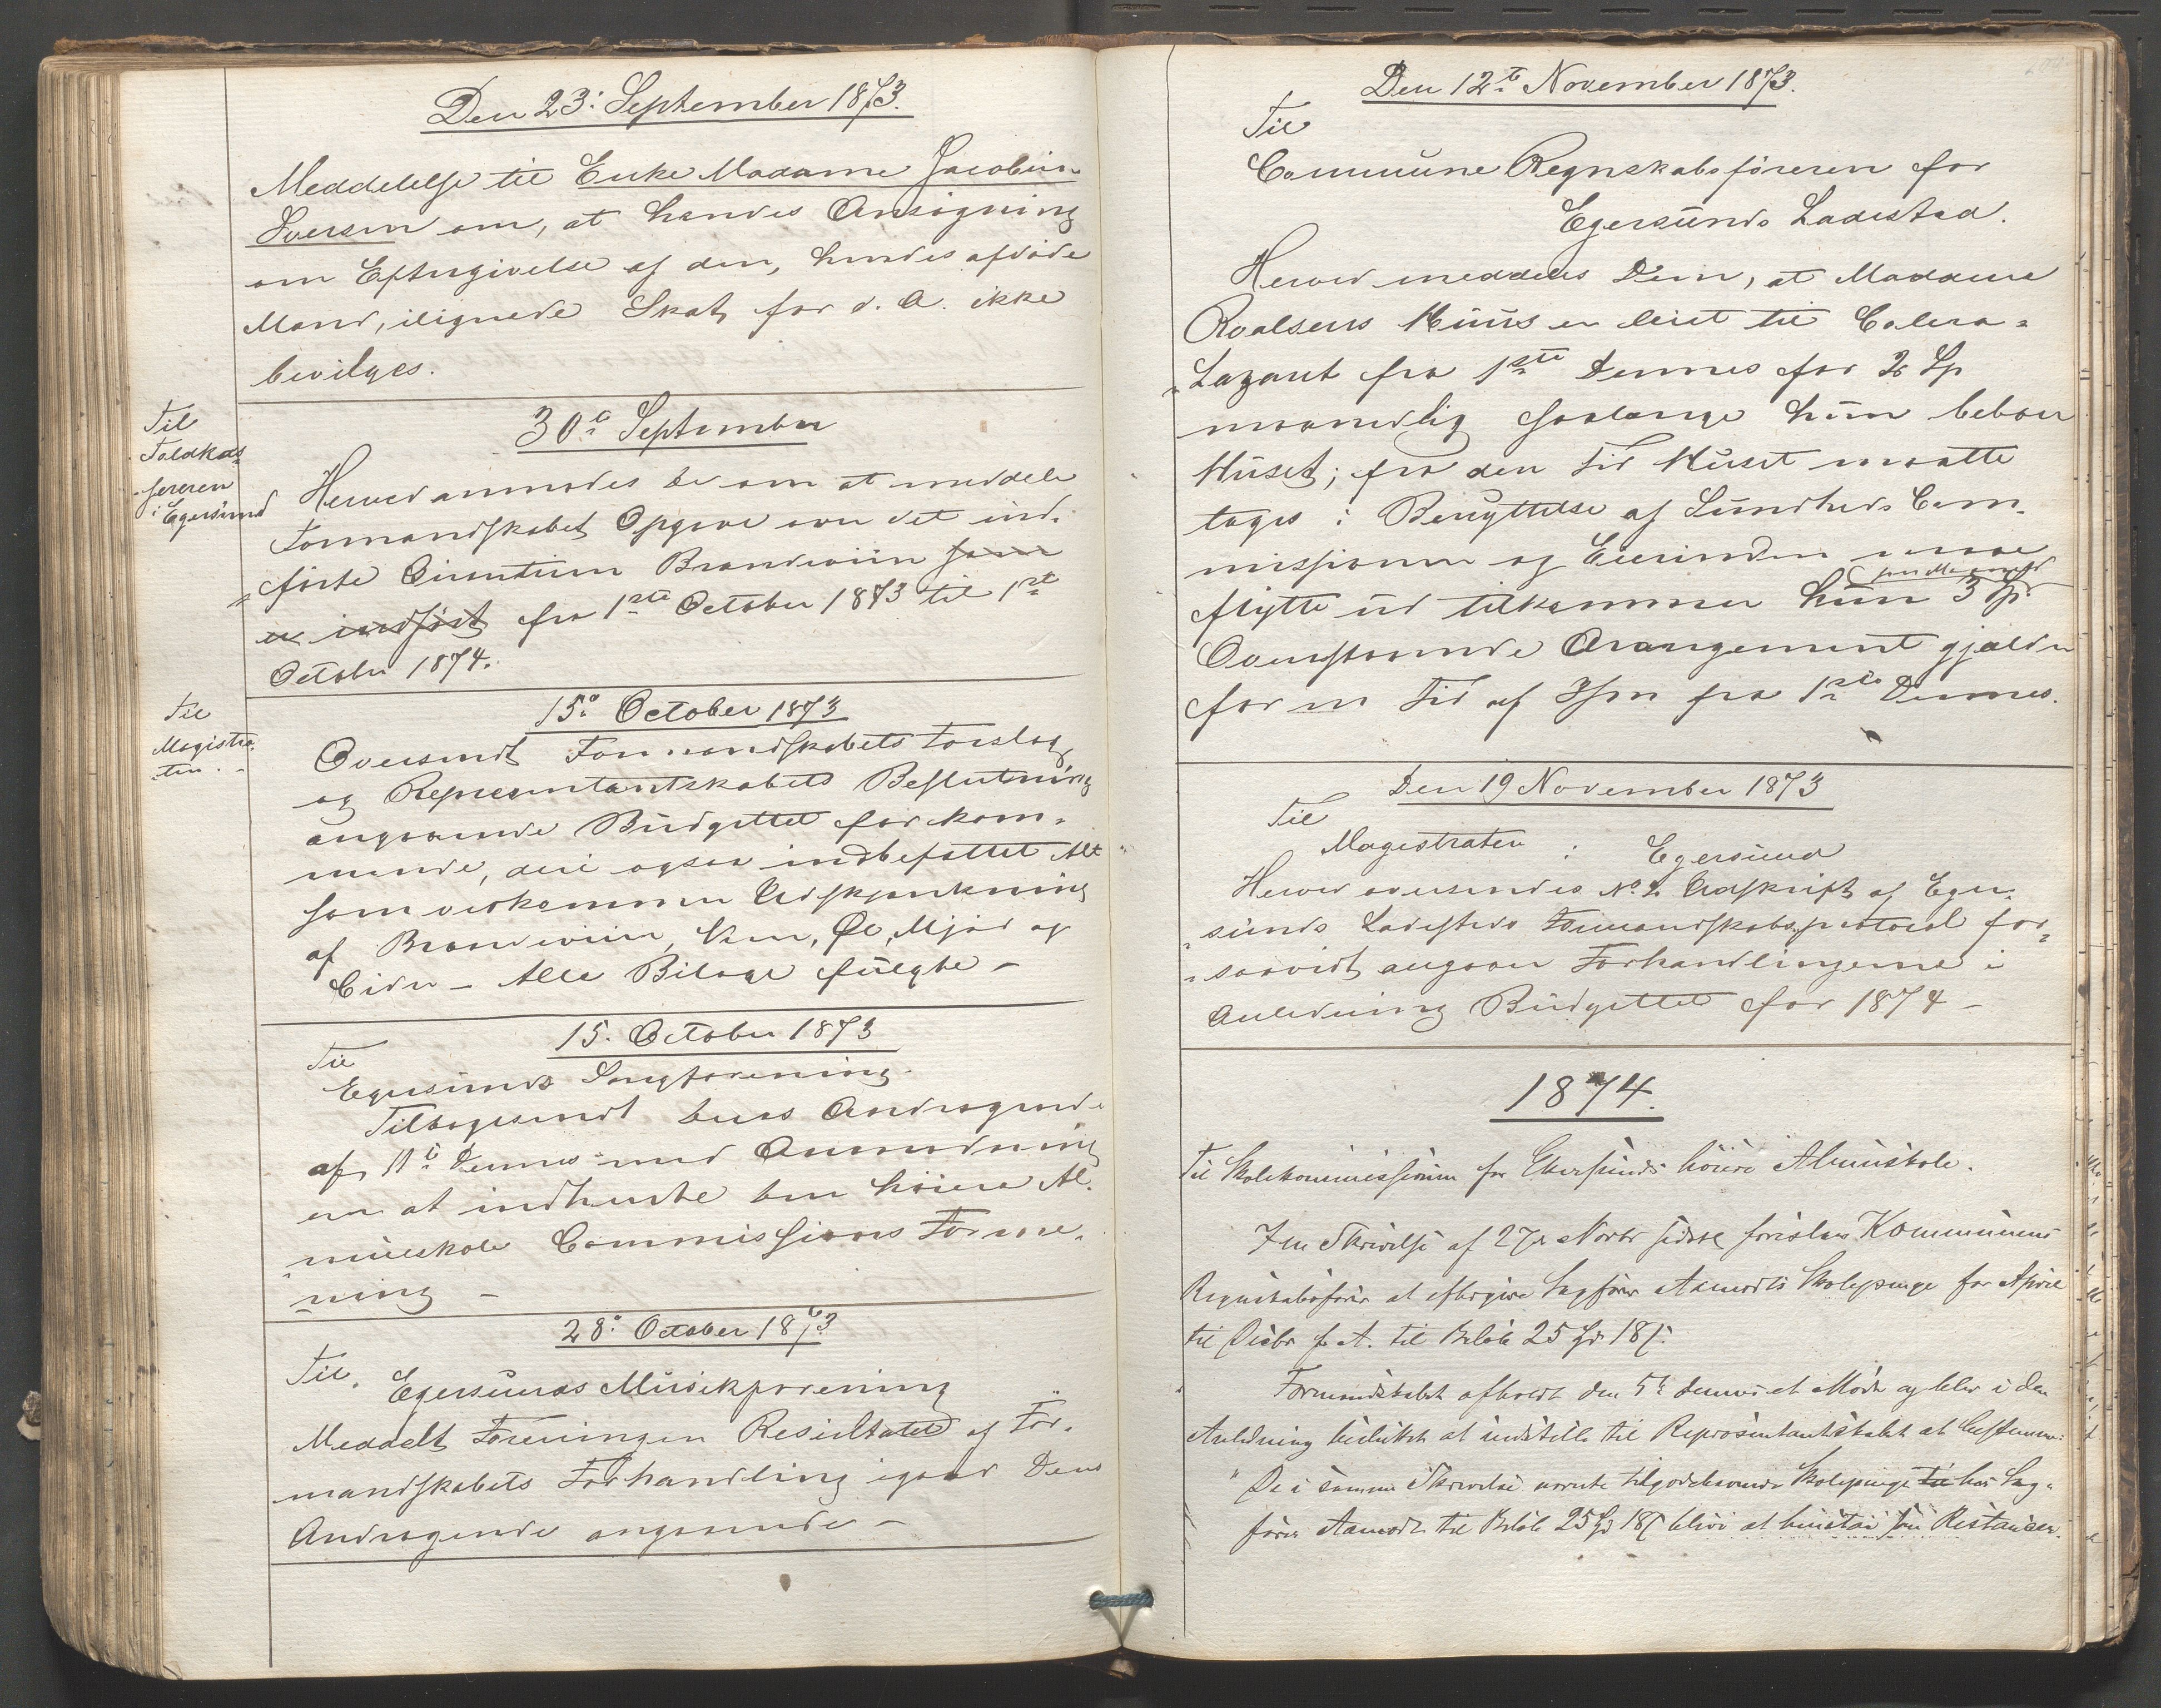 Den 23: September 1873.
Meddelelse til Enke Madame Jacobine
Iversen om, at hendes Ansøgning
om Eftergivelse af den, hendes afdøde
Mand, ilignede Skat for d. A. ikke
bevilges.
Til
Toldkas
sereren
i Egersund
30te September
Herved anmodes De om at meddele
Formandskabet Opgave over det ind-
førte Quantum Brændeviin som
er indført fra 1ste October 1873 til 1st
October 1874.
Til
Magistra
ten.
15de October 1873
Oversendt Formandskabets Forslag
og Representantskabets Beslutning
angaaende Büdgettet for kom-
mende, deri ogsaa indbefattet Alt
som vedkommer Udskjænkning
af Brændeviin, Viin, Øl, Mjød og
Cider - Alle Bilage fulgte -
15. October 1873
Til
Egersunds Sangforening.
Tilbagesendt dens Andragende
af 11te dennes med Anmodning
om at indhente den høiere Al-
mueskole Commissions Formee-
ning -
28de October 1873
Til Egersunds Musikforening
Meddelt Foreningen Resultatet af For-
mandskabets Forhandling igaar Dens
Andragende angaaende -
Den 12te November 1873.
Til
Commune Regnskabsføreren for
Egersunds Ladestad.
Herved meddeles Dem, at Madame
Roalsens Huus er leiet til Colera-
Lazaret fra 1ste Dennes for 2 Sp
maanedlig saalænge hun beboer
Huset; fra den Tid Huset maatte
tages i Benyttelse af Sundheds Com-
missionen og Eierinden maae
flytte ud tilkommer hun 3 Sp.
Ovenstaaende Arangement gjælder
for en Tid af fra 1ste Dennes.
Den 19 November 1873
Til
Magistraten i Egersund
Herved oversendes No 2 Udskrift af Eger-
sunds Ladesteds Formandskabsprotocol for-
saavidt angaaer Forhandlingerne i
Anledning Büdgettet for 1874 -
1874.
Til Skolekommissionen for Ekersunds høiere Almueskole.
I en Skrivelse af 27de Novbr sidstl. foreslaar Kommunens
Regnskabsfører at eftergive Sagfører Aamodts Skolepenge for April
til Decbr f. A. til Beløb 25 Sp 18 s.
Formandskabet afholdt den 5te dennes et Møde og blev i den
Anledning besluttet at indstille til Repræsentantskabet at bestemme:
"De i samme Skrivelse nævnte tilgodehavende Skolepenge til hos Sag-
fører Aamodt til Beløb 25 Sp 18 s blive at henstaa som Restancer.